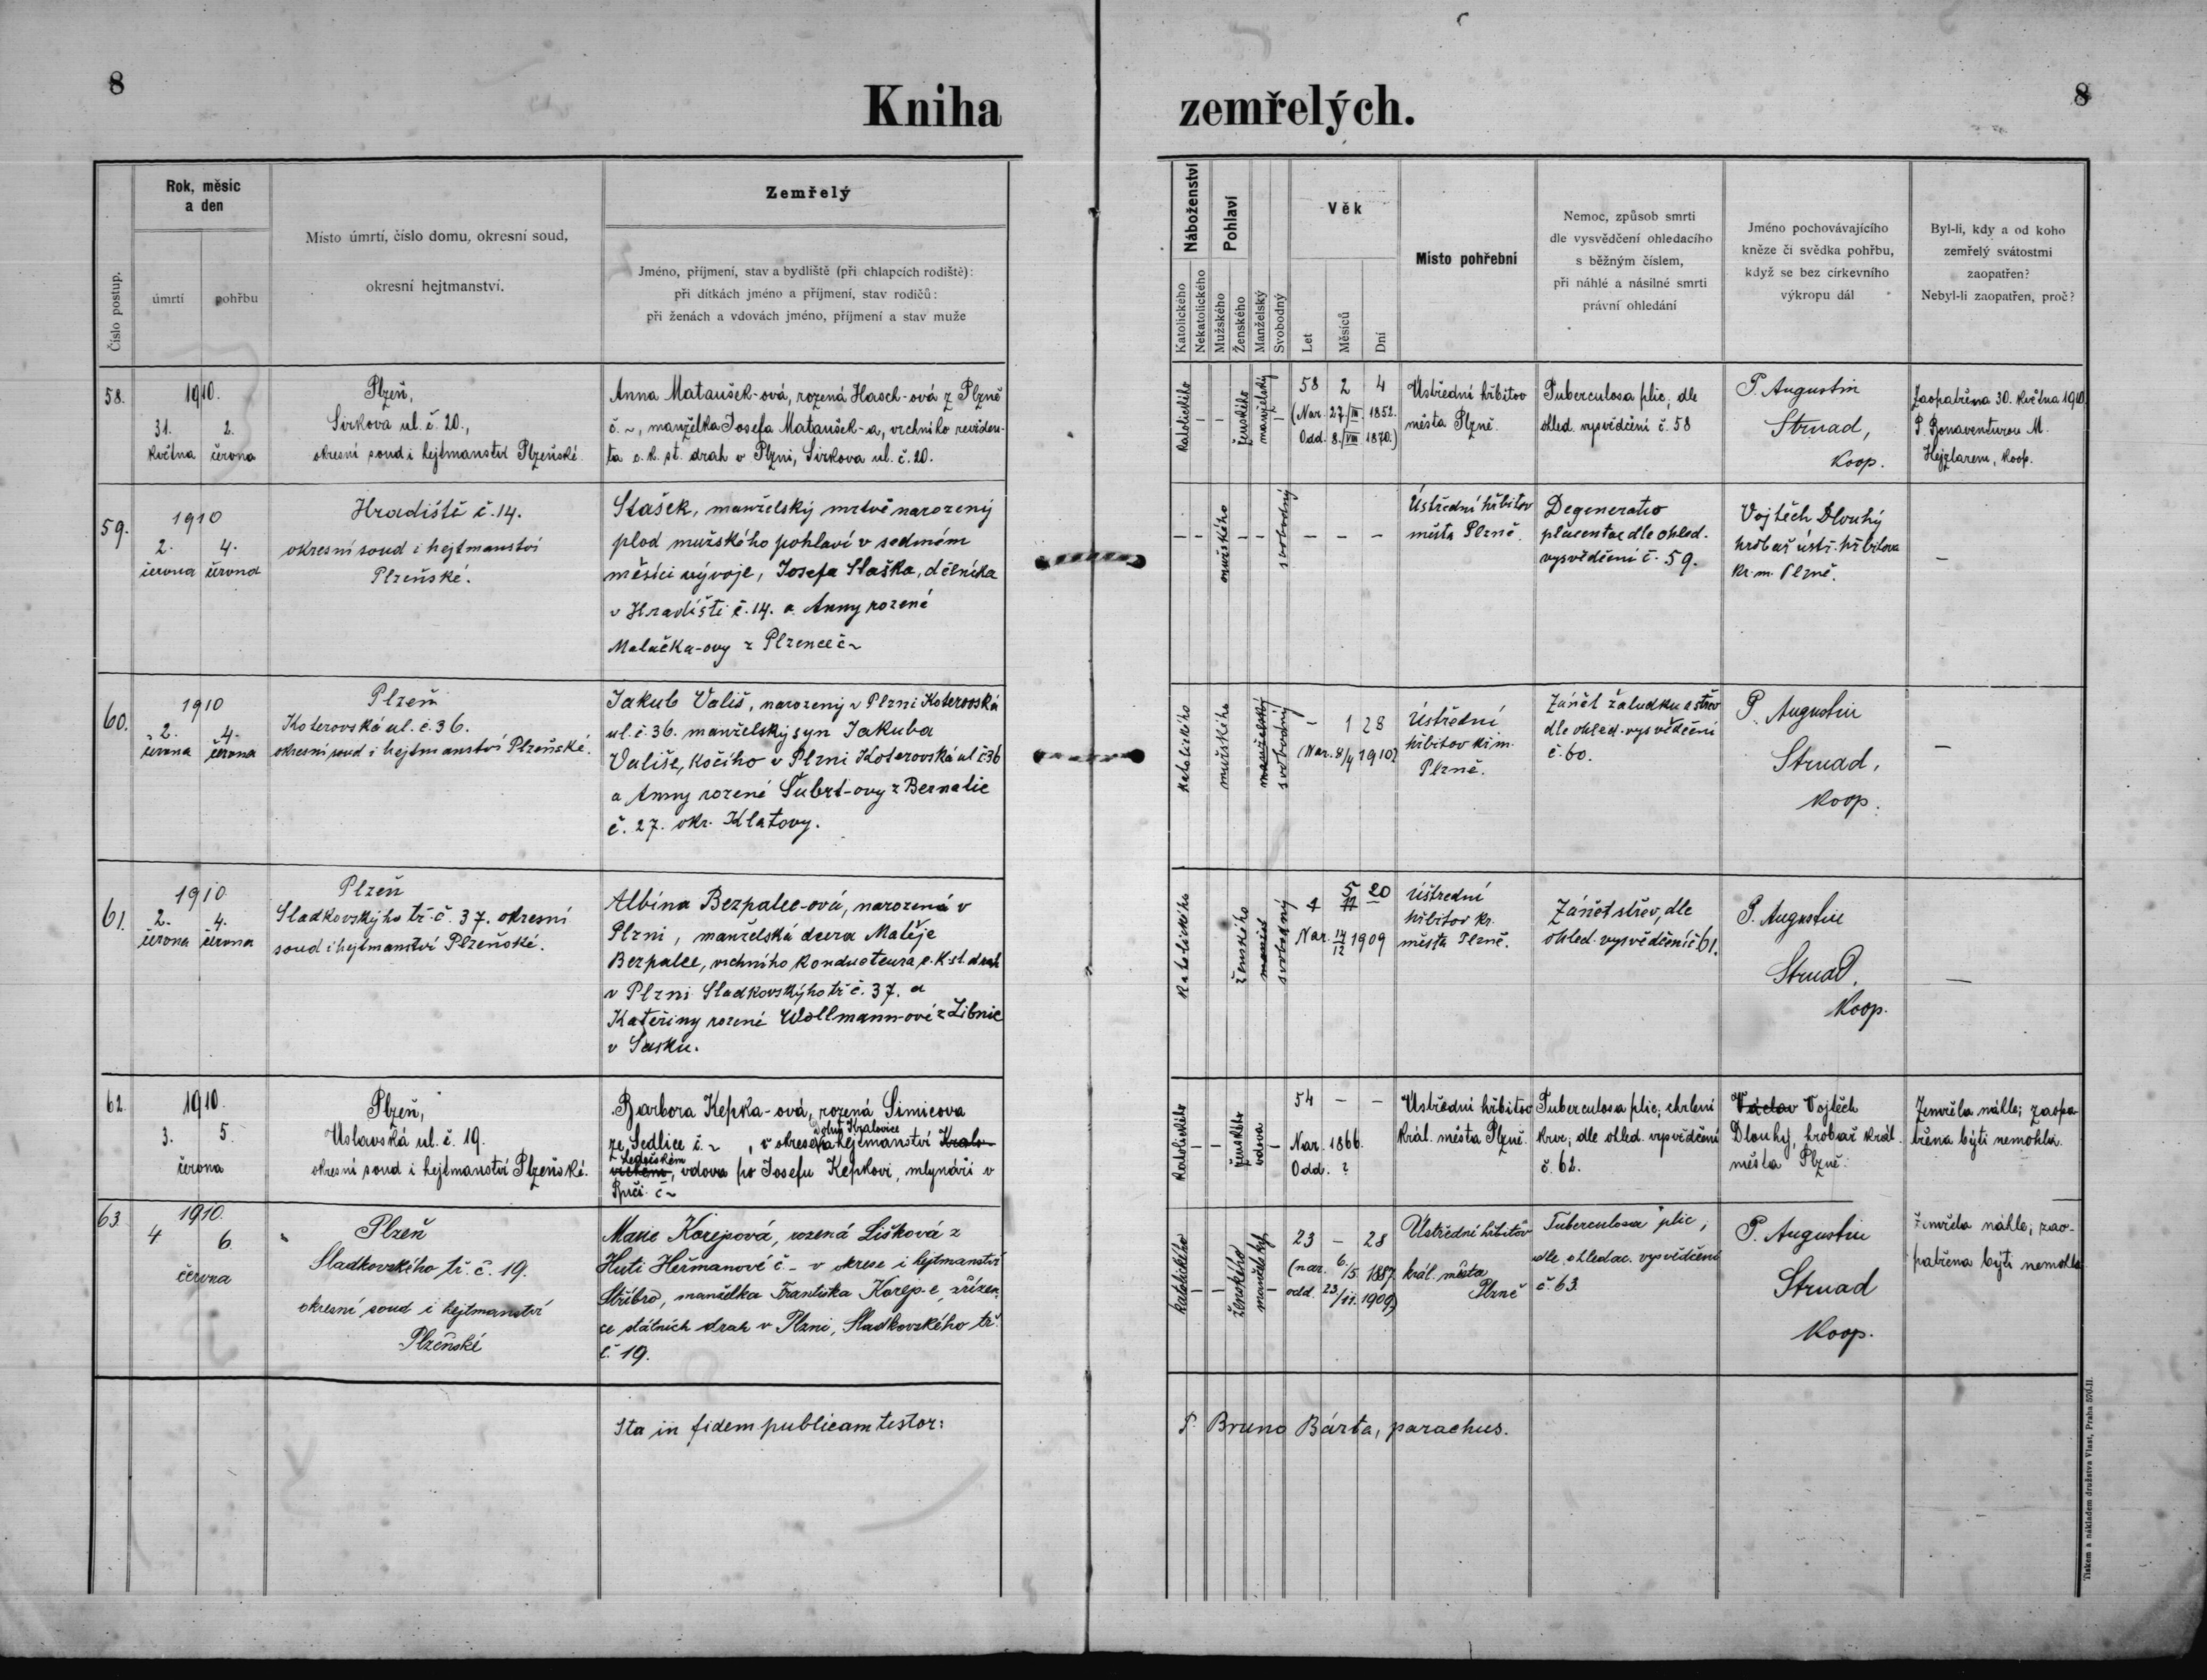 8
Kniha
zemřelých.
8
Číslo postup.
Rok, měsíc
a den
úmrtí
pohřbu
Místo úmrtí, číslo domu, okresní soud,
okresní hejtmanství.
Zemřelý
Jméno, příjmení, stav a bydliště (při chlapcích rodiště):
při dítkách jméno a příjmení, stav rodičů:
při ženách a vdovách jméno, příjmení a stav muže
Náboženství
Katolického
Nekatolického
Pohlaví
Mužského
Ženského
Manželský
Svobodný
Věk
Let
Měsíců
Dní
Místo pohřební
Nemoc, způsob smrti
dle vysvědčení ohledacího
s běžným číslem,
při náhlé a násilné smrti
právní ohledání
Jméno pochovávajícího
kněze či svědka pohřbu,
když se bez církevního
výkropu dál
Byl-li, kdy a od koho
zemřelý svátostmi
zaopatřen?
Nebyl-li zaopatřen, proč?
58.
1910.
31. 2.
května června
Plzeň,
Sirkova ul. č. 20.,
okresní soud i hejtmanství Plzeňské.
Anna Mataušek-ová, rozená Hasch-ová z Plzně
č. ~, manželka Josefa Mataušek-a, vrchního reviden-
ta c. k. st. drah v Plzni, Sirkova ul. č. 20.
katolického
-
-
ženského
manželský
-
58 2 4
(Nar. 27./III 1852.
Odd. 8./VIII 1870.)
Ústřední hřbitov
města Plzně.
Tuberculosa plic, dle
ohled. vysvědčení č. 58
P. Augustin
Strnad,
koop.
Zaopatřena 30. května 1910
P. Bonaventurou M.
Hejzlarem, koop.
59.
1910
2. 4.
června června
Hradiště č. 14.
okresní soud i hejtmanství
Plzeňské.
Stašek, manželský mrtvě narozený
plod mužského pohlaví v sedmém
měsíci vývoje, Josefa Staška, dělníka
v Hradišti č. 14. a Anny rozené
Malačka-ovy z Plzence č ~
- -
mužského
- -
svobodný
- - -
Ústřední hřbitov
města Plzně.
Degeneratio
placentae dle ohled.
vysvědčení č. 59.
Vojtěch Dlouhý
hrobař ústř. hřbitova
kr. m. Plzně.
-
60.
1910
2. 4.
června června
Plzeň
Koterovská ul. č. 36.
okresní soud i hejtmanství Plzeňské.
Jakub Vališ, narozený v Plzni Koterovská
ul. č. 36. manželský syn Jakuba
Vališe, kočího v Plzni Koterovská ul č. 36
a Anny rozené Šubrt-ovy z Bernatic
č. 27. okr. Klatovy.
katolického
mužského
manželský
svobodný
- 1 28
(Nar. 4/4 1910)
Ústřední
hřbitov kr. m.
Plzně.
Zánět žaludku a střev
dle ohled. vysvědčení
č. 60.
P. Augustin
Strnad,
koop.
-
61.
1910
2. 4.
června června
Plzeň
Sladkovskýho tř. č. 37. okresní
soud i hejtmanství Plzeňské.
Albína Bezpalec-ová, narozená v
Plzni, manželská dcera Matěje
Bezpalce, vrchního konducteura c. k. st. drah
v Plzni Sladkovskýho tř. č. 37. a
Kateřiny rozené Wollmann-ové z Libnic
v Sasku.
katolického
ženského
svobodný
5 20
Nar. 14/12 1909
Ústřední
hřbitov kr.
města Plzně.
Zánět střev, dle
ohled. vysvědčení č 61.
P. Augustin
Strnad,
koop.
-
62.
1910.
3. 5.
června
Plzeň,
Úslavská ul. č. 19.
okresní soud i hejtmanství Plzeňské.
Barbora Kepka-ová, rozená Simicova
ze Sedlice č. ~, v okrese a hejtmanství Kralo-
Ledečském
vdova po Josefu Kepkovi, mlynáři v
katolického
-
-
ženského
vdova
-
54 - -
Nar. 1866.
Odd. ?
Ústřední hřbitov
král. města Plzně.
Tuberculosa plic, chrlení
krve, dle ohled. vysvědčení
č. 62.
Václav Vojtěch
Dlouhý, hrobař král.
města Plzně.
Zemřela náhle; zaopa-
třena býti nemohla.
63.
1910.
4 6.
června
Plzeň
Sladkovského tř. č. 19.
okresní soud i hejtmanství
Plzeňské
Marie Korejsová, rozená Lišková z
Huti Heřmanové č. - v okrese i hejtmanství
Stříbro, manželka Františka Korejs-e, zřízen-
ce státních drah v Plzni, Sladkovského tř.
č. 19.
katolického
-
-
ženského
manželský
-
23 - 28
(nar. 6/5 1887
odd. 23/11. 1909)
Ústřední hřbitov
král. města
Plzně
Tuberculosa plic,
dle ohledac. vysvědčení
č. 63.
P. Augustin
Strnad
Koop.
Zemřela náhle; zao-
patřena býti nemohla
Ita in fidem publicam testor:
P. Bruno Bárta, parochus.
Tiskem a nákladem družstva Vlast, Praha 570-II.